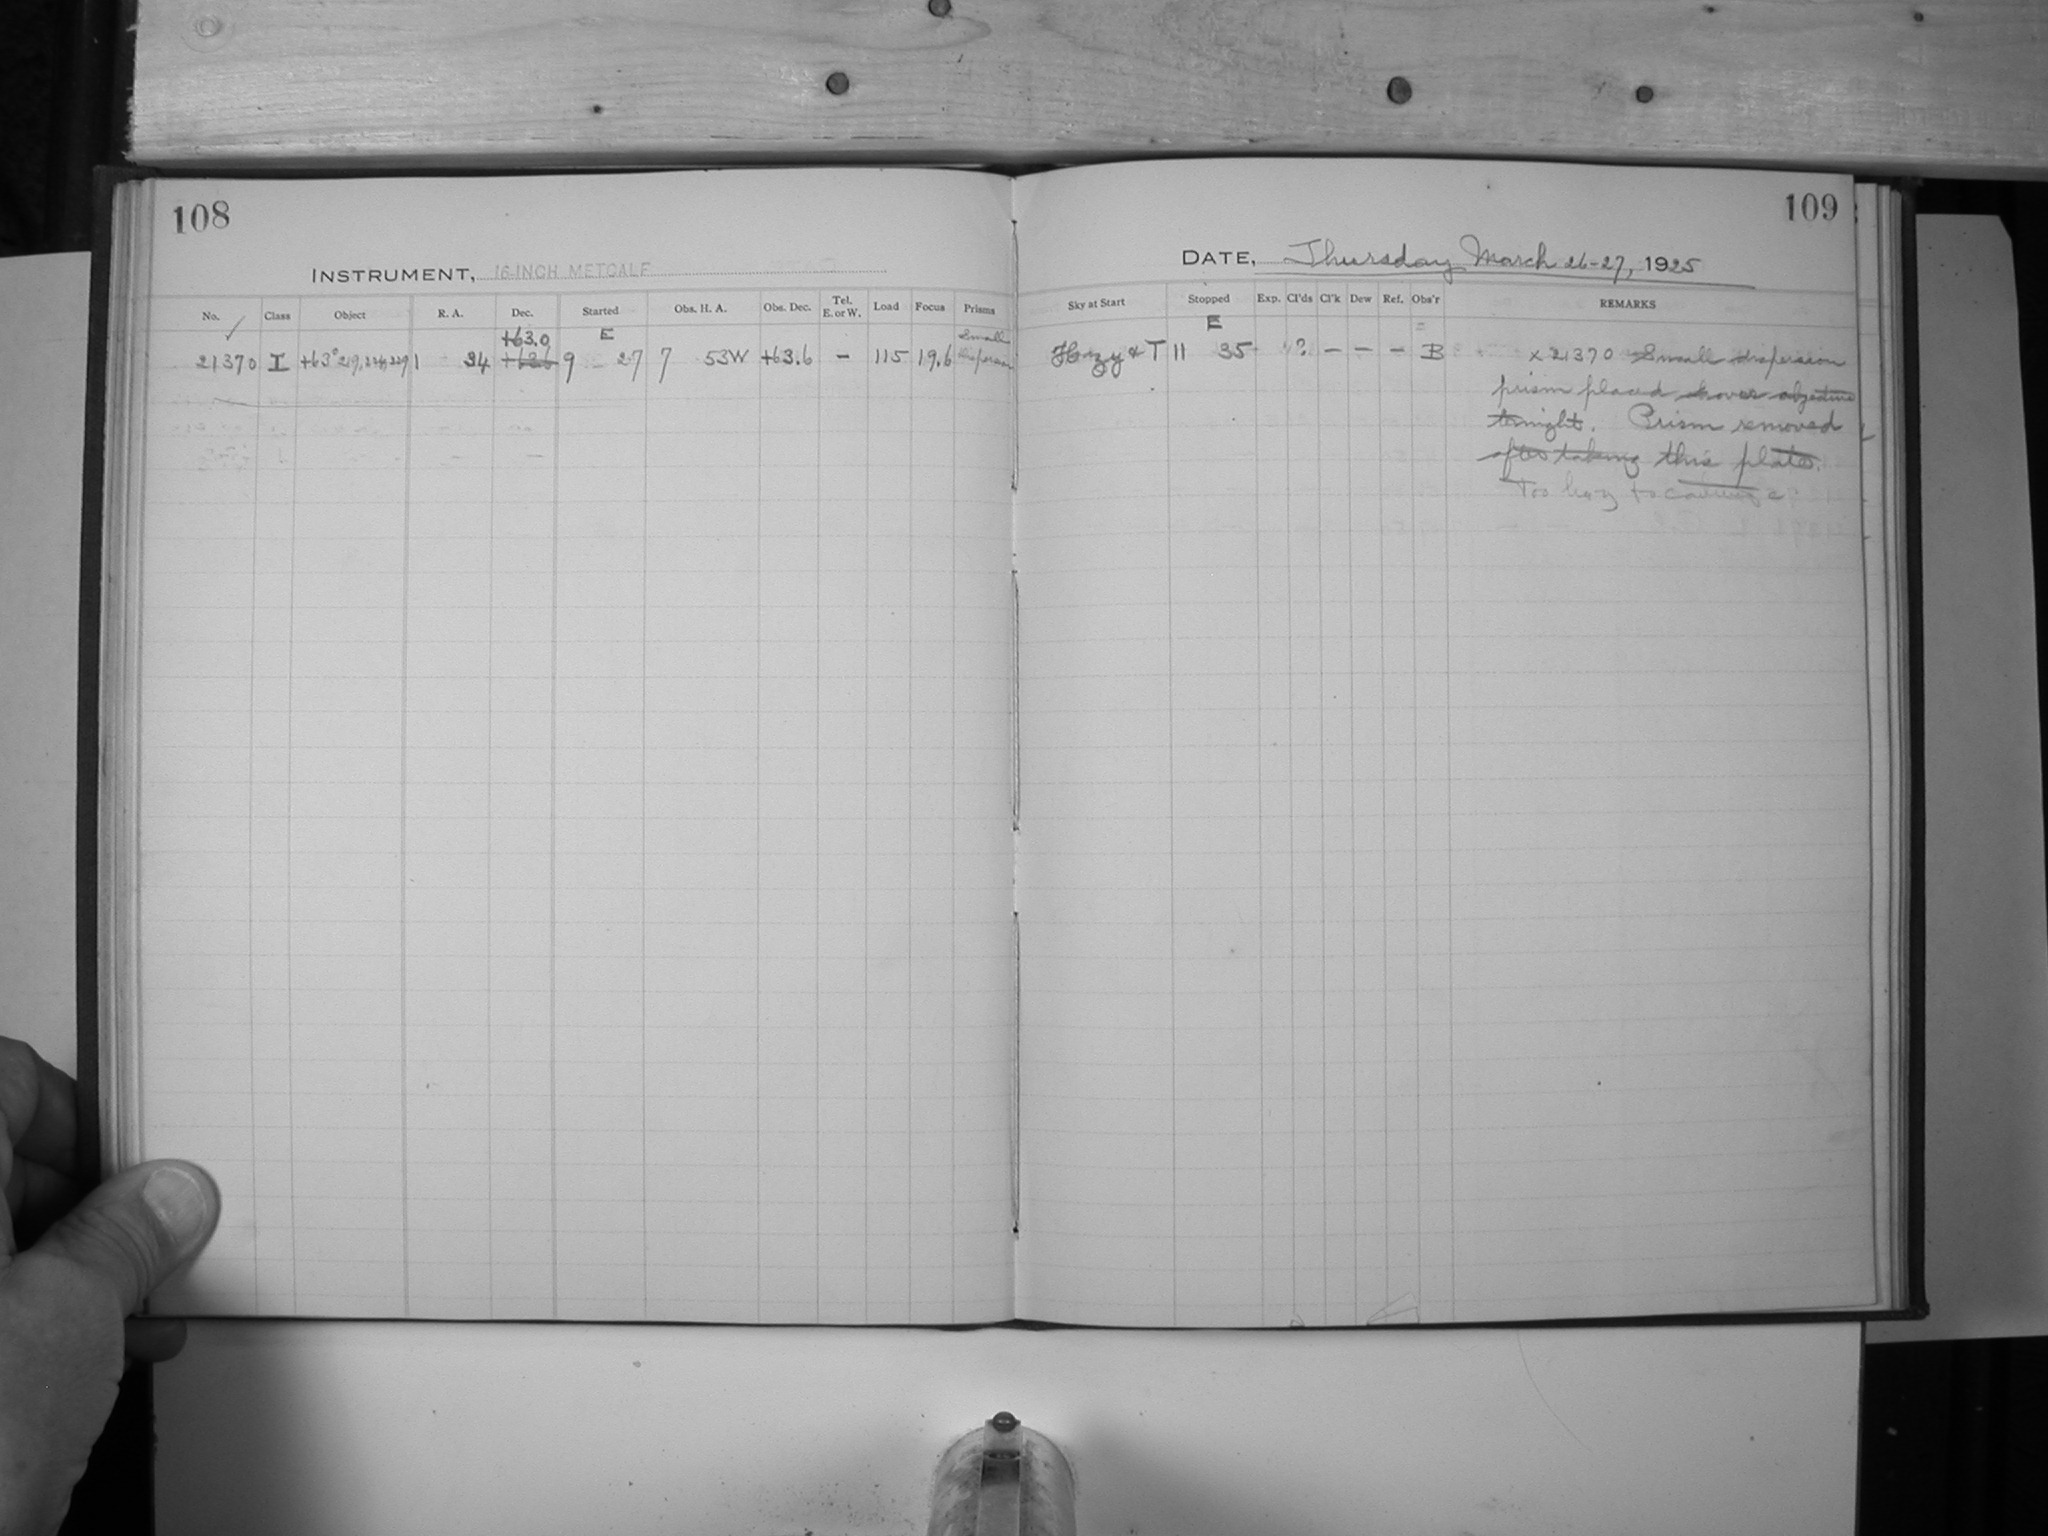 108
INSTRUMENT, 16-INCH METCALF
No. Class Object R. A. Dec. Started Obs. H. A. Obs. Dec. Tel. E. or W. Load Focus Prisms
+63.0 E Small
21370 I +63° 219, 224, 229 1 34 +63.6 9 27 7 53W +63.6 – 115 19.6 dispersion
109
DATE, Thursday March 26-27, 1925
Sky at Start Stopped Exp. Cl'ds Cl'k Dew Ref. Obs'r REMARKS
E
Hazy & T 11 35 ? – – – B x 21370 Small dispersion
prism placed over objective
tonight. Prism removed
after taking this plate.
Too hazy to continue